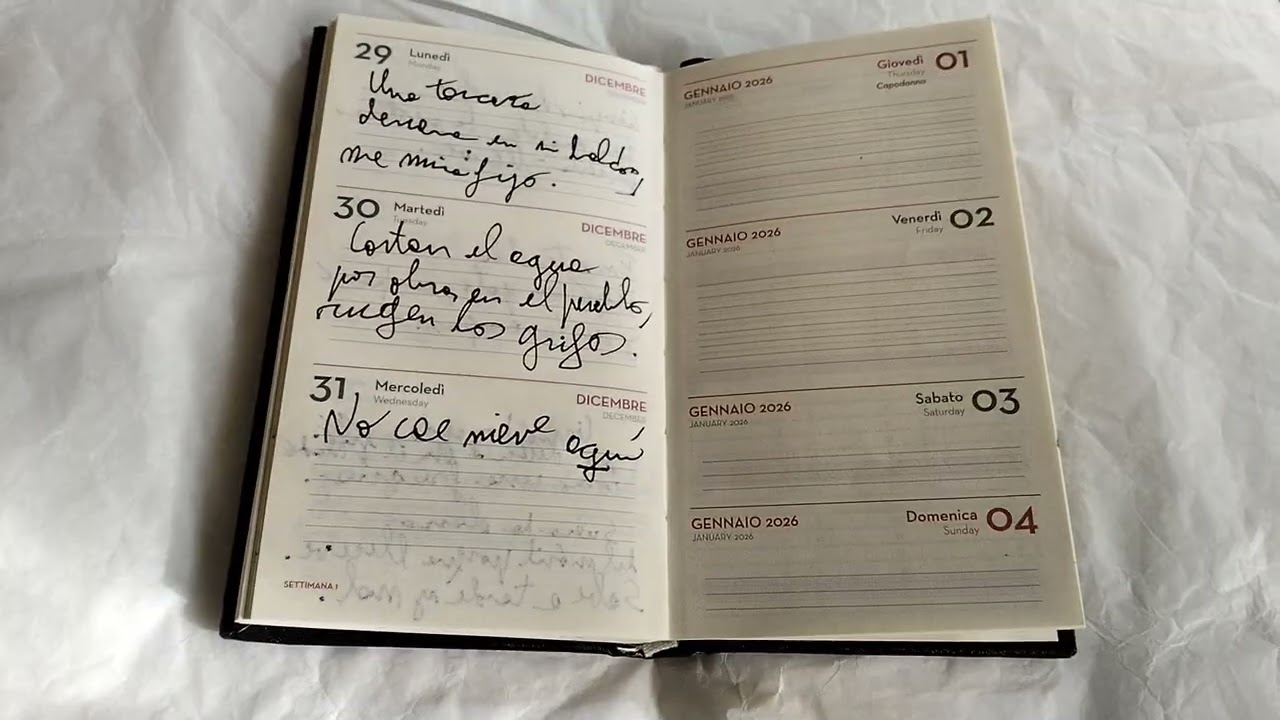 29 Lunedì
Monday
DICEMBRE
Una torcaza
descansa en mi balcón,
me mira fijo.
30 Martedì
Tuesday
DICEMBRE
DECEMBER
Cortan el agua
por obras en el pueblo,
rugen los grifos.
31 Mercoledì
Wednesday
DICEMBRE
DECEMBER
No cae nieve aquí
SETTIMANA 1
GENNAIO 2026
JANUARY 2026
Giovedì 01
Thursday
Capodanno
GENNAIO 2026
JANUARY 2026
Venerdì 02
Friday
GENNAIO 2026
JANUARY 2026
Sabato 03
Saturday
GENNAIO 2026
JANUARY 2026
Domenica 04
Sunday